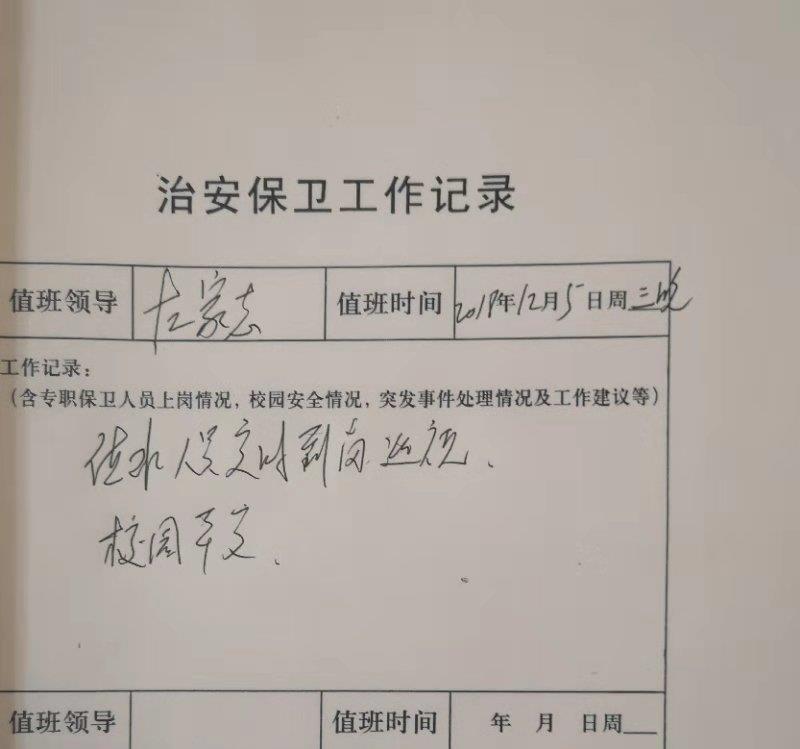 治安保卫工作记录
值班领导 左家志 值班时间 2018年12月5日周三晚
工作记录：
（含专职保卫人员上岗情况，校园安全情况，突发事件处理情况及工作建议等）
值班人员定时到岗巡视、
校园平安、
值班领导 值班时间 年 月 日周